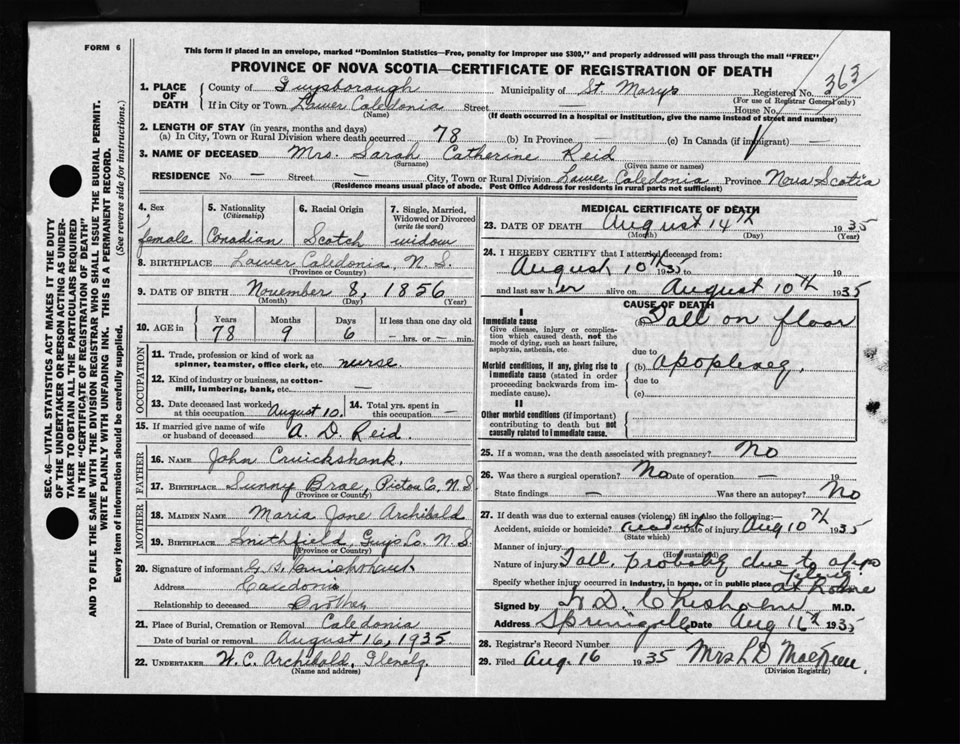 FORM 6
This form if placed in an envelope, marked "Dominion Statistics—Free, penalty for improper use $300," and properly addressed will pass through the mail "FREE"
PROVINCE OF NOVA SCOTIA—CERTIFICATE OF REGISTRATION OF DEATH
363
1. PLACE OF DEATH County of Guysborough Municipality of St. Marys Registered No.
(For use of Registrar General only)
If in City or Town Lower Caledonia Street House No.
(Name) (If death occurred in a hospital or institution, give the name instead of street and number)
2. LENGTH OF STAY (in years, months and days)
(a) In City, Town or Rural Division where death occurred 78 (b) In Province (c) In Canada (if immigrant) —
3. NAME OF DECEASED Mrs. Sarah Catherine Reid
(Surname) (Given name or names)
RESIDENCE No — Street — City, Town or Rural Division Lower Caledonia Province Nova Scotia
(Residence means usual place of abode. Post Office Address for residents in rural parts not sufficient)
SEC. 46—VITAL STATISTICS ACT MAKES IT THE DUTY
OF THE UNDERTAKER OR PERSON ACTING AS UNDER-
TAKER TO OBTAIN ALL THE PARTICULARS REQUIRED
IN THE "CERTIFICATE OF REGISTRATION OF DEATH"
AND TO FILE THE SAME WITH THE DIVISION REGISTRAR WHO SHALL ISSUE THE BURIAL PERMIT.
WRITE PLAINLY WITH UNFADING INK. THIS IS A PERMANENT RECORD.
Every item of information should be carefully supplied. (See reverse side for instructions.)
4. Sex 5. Nationality 6. Racial Origin 7. Single, Married,
(Citizenship) Widowed or Divorced
(write the word)
female Canadian Scotch widow
8. BIRTHPLACE Lower Caledonia, N. S.
(Province or Country)
9. DATE OF BIRTH November 8, 1856
(Month) (Day) (Year)
10. AGE in Years Months Days If less than one day old
78 9 6 — hrs. or — min.
OCCUPATION
11. Trade, profession or kind of work as
spinner, teamster, office clerk, etc. nurse.
12. Kind of industry or business, as cotton-
mill, lumbering, bank, etc. —
13. Date deceased last worked at this occupation August 10. 14. Total yrs. spent in this occupation —
15. If married give name of wife
or husband of deceased A. D. Reid.
FATHER
16. NAME John Cruickshank.
17. BIRTHPLACE Sunny Brae, Pictou Co, N. S
(Province or Country)
MOTHER
18. MAIDEN NAME Maria Jane Archibald
19. BIRTHPLACE Smithfield, Guys Co. N. S.
(Province or Country)
20. Signature of informant Cruickshank
Address Caledonia
Relationship to deceased Brother
21. Place of Burial, Cremation or Removal Caledonia
Date of burial or removal August 16, 1935
22. UNDERTAKER W. C. Archibald, Glenelg.
(Name and address)
MEDICAL CERTIFICATE OF DEATH
23. DATE OF DEATH August 14th 1935
(Month) (Day) (Year)
24. I HEREBY CERTIFY that I attended deceased from:
August 10th 1935 to 19
and last saw her alive on August 10th 1935
CAUSE OF DEATH
I
Immediate cause (a) Fall on floor
Give disease, injury, or complica-
tion which caused death, not the
mode of dying, such as heart failure,
asphyxia, asthenia, etc.
due to
Morbid conditions, if any, giving rise to
immediate cause (stated in order
proceeding backwards from im-
mediate cause).
(b) apoplexy.
due to
(c)
II
Other morbid conditions (if important)
contributing to death but not
causally related to immediate cause.
25. If a woman, was the death associated with pregnancy? No
26. Was there a surgical operation? No Date of operation — 19
State findings — Was there an autopsy? No
27. If death was due to external causes (violence) fill in also the following:—
Accident, suicide or homicide? Date of injury Aug 10th 1935
(State which)
Manner of injury
(How sustained)
Nature of injury Fall. probably due to apo
plexy
Specify whether injury occurred in industry, in home, or in public place at Home
Signed by Chisholm M.D.
Address Date Aug 16th 1935
28. Registrar's Record Number
29. Filed Aug. 16 1935 Mrs
(Division Registrar)